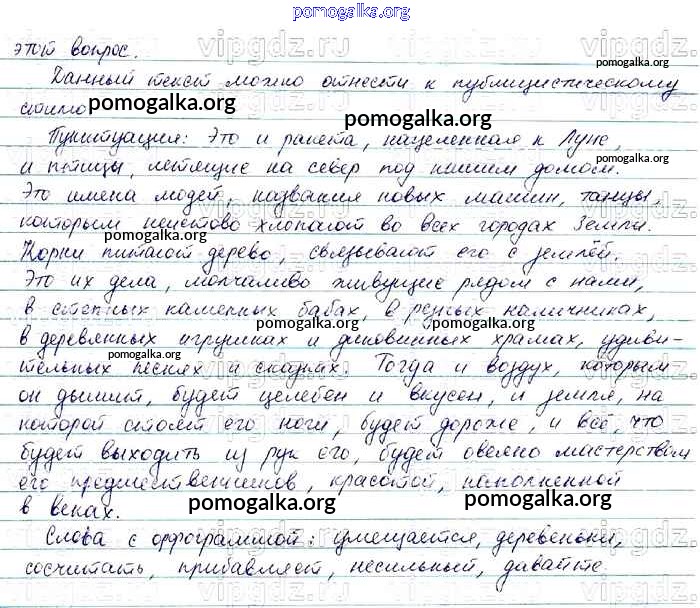 pomogalka.org
этот вопрос.
Данный текст можно отнести к публицистическому
стилю
Пунктуация: Это и ракета, нацеленная к Луне,
и птицы, летящие на север под нашим домом.
Это имена людей, названия новых машин, танцы,
которым неистово хлопают во всех городах Земли.
Корни питают дерево, связывают его с землёй.
Это их дела, молчаливо живущие рядом с нами,
в степных каменных бабах, в резных наличниках,
в деревянных игрушках и диковинных храмах, удиви-
тельных песнях и сказках. Тогда и воздух, которым
он дышит, будет целебен и вкусен, и земля, на
которой стоят его ноги, будет дороже, и всё, что
будет выходить из рук его, будет овеяно мастерством
его предшественников, красотой, накопленной
в веках.
Слова с орфограммой: умещается, деревеньки,
сосчитать, прибавляет, несильный, давайте.